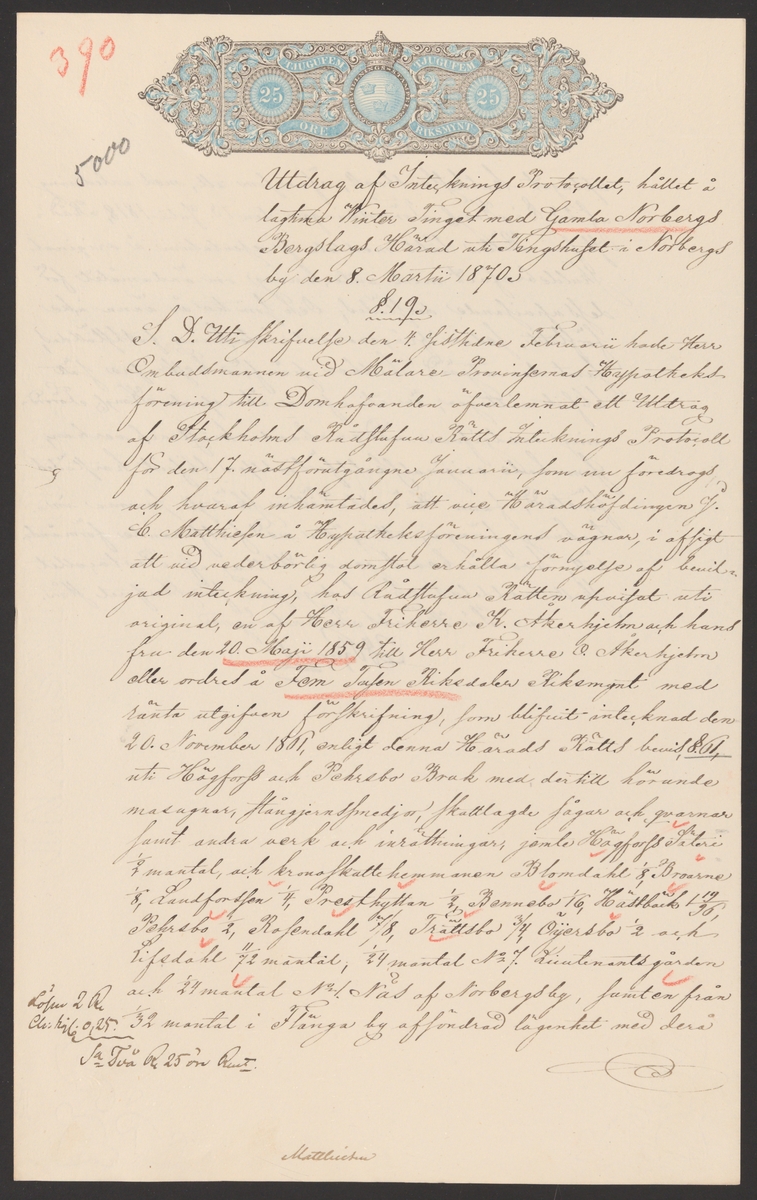 390
5000
TJUGUFEM TJUGUFEM
25 25
ÖRE RIKSMYNT
Utdrag af Intecknings Protocollet, hållet å
lagtima Winter Tinget med Gamla Norbergs
Bergslags Härad uti Tingshuset i Norbergs
by den 8. Martii 1870.
§. 19.
S. D. Uti skrifvelse den 4. sistlidne Februarii hade Herr
Ombudsmannen vid Mälare Provinsernas Hypotheks
förening till Domhafvanden öfverlemnat ett Utdrag
af Stockholms Rådstufvu Rätts Intecknings Protocoll
för den 17. nästförutgångne Januarii, som nu föredrogs
och hvaraf inhämtades, att vice Häradshöfdingen J.
C. Matthiesen å Hypotheksföreningens vägnar, i afsigt
att vid vederbörlig domstol erhålla förnyelse af bevil-
jad inteckning, hos Rådstufvu Rätten uppvisat uti
original, en af Herr Friherre K. Åkerhjelm och hans
fru den 20. Maji 1859 till Herr Friherre O. Åkerhjelm
eller ordres å Fem Tusen Riksdaler Riksmynt med
ränta utgifven förskrifning, som blifvit intecknad den
20. November 1861, enligt denna Härads Rätts bevis, §. 61,
uti Högforss och Pehrsbo Bruk med dertill hörande
masugnar, stångjernssmedjor, skattlagde sågar och qvarnar
samt andra verk och inrättningar, jemte Högforss Säteri
1/2 mantal, och kronoskattehemmanen Blomdahl 1/8, Broarne
1/8, Landforssen 1/4, Presthyttan 1/2, Bennebo 1/6, Hästbäck 1 19/96,
Pehrsbo 1/2, Rosendahl 7/8, Trättsbo 3/4, Öijersbo 1/2 och
Lifsdahl 11/72 mantal, 1/24 mantal No 7. Lieutenantsgården
och 1/24 mantal No 1. Näs af Norbergsby, samt en från
1/32 mantal i Flänga by afsöndrad lägenhet med derå
Lösen 2 Rd
0,25.
Sa Två Rd 25 öre Rmt.
Matthiesen